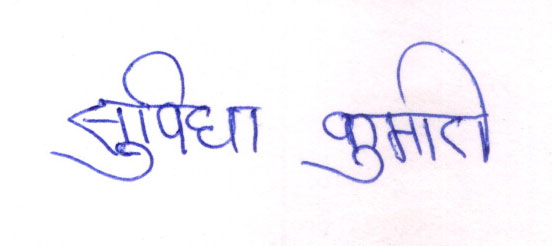 सुविधा कुमारी